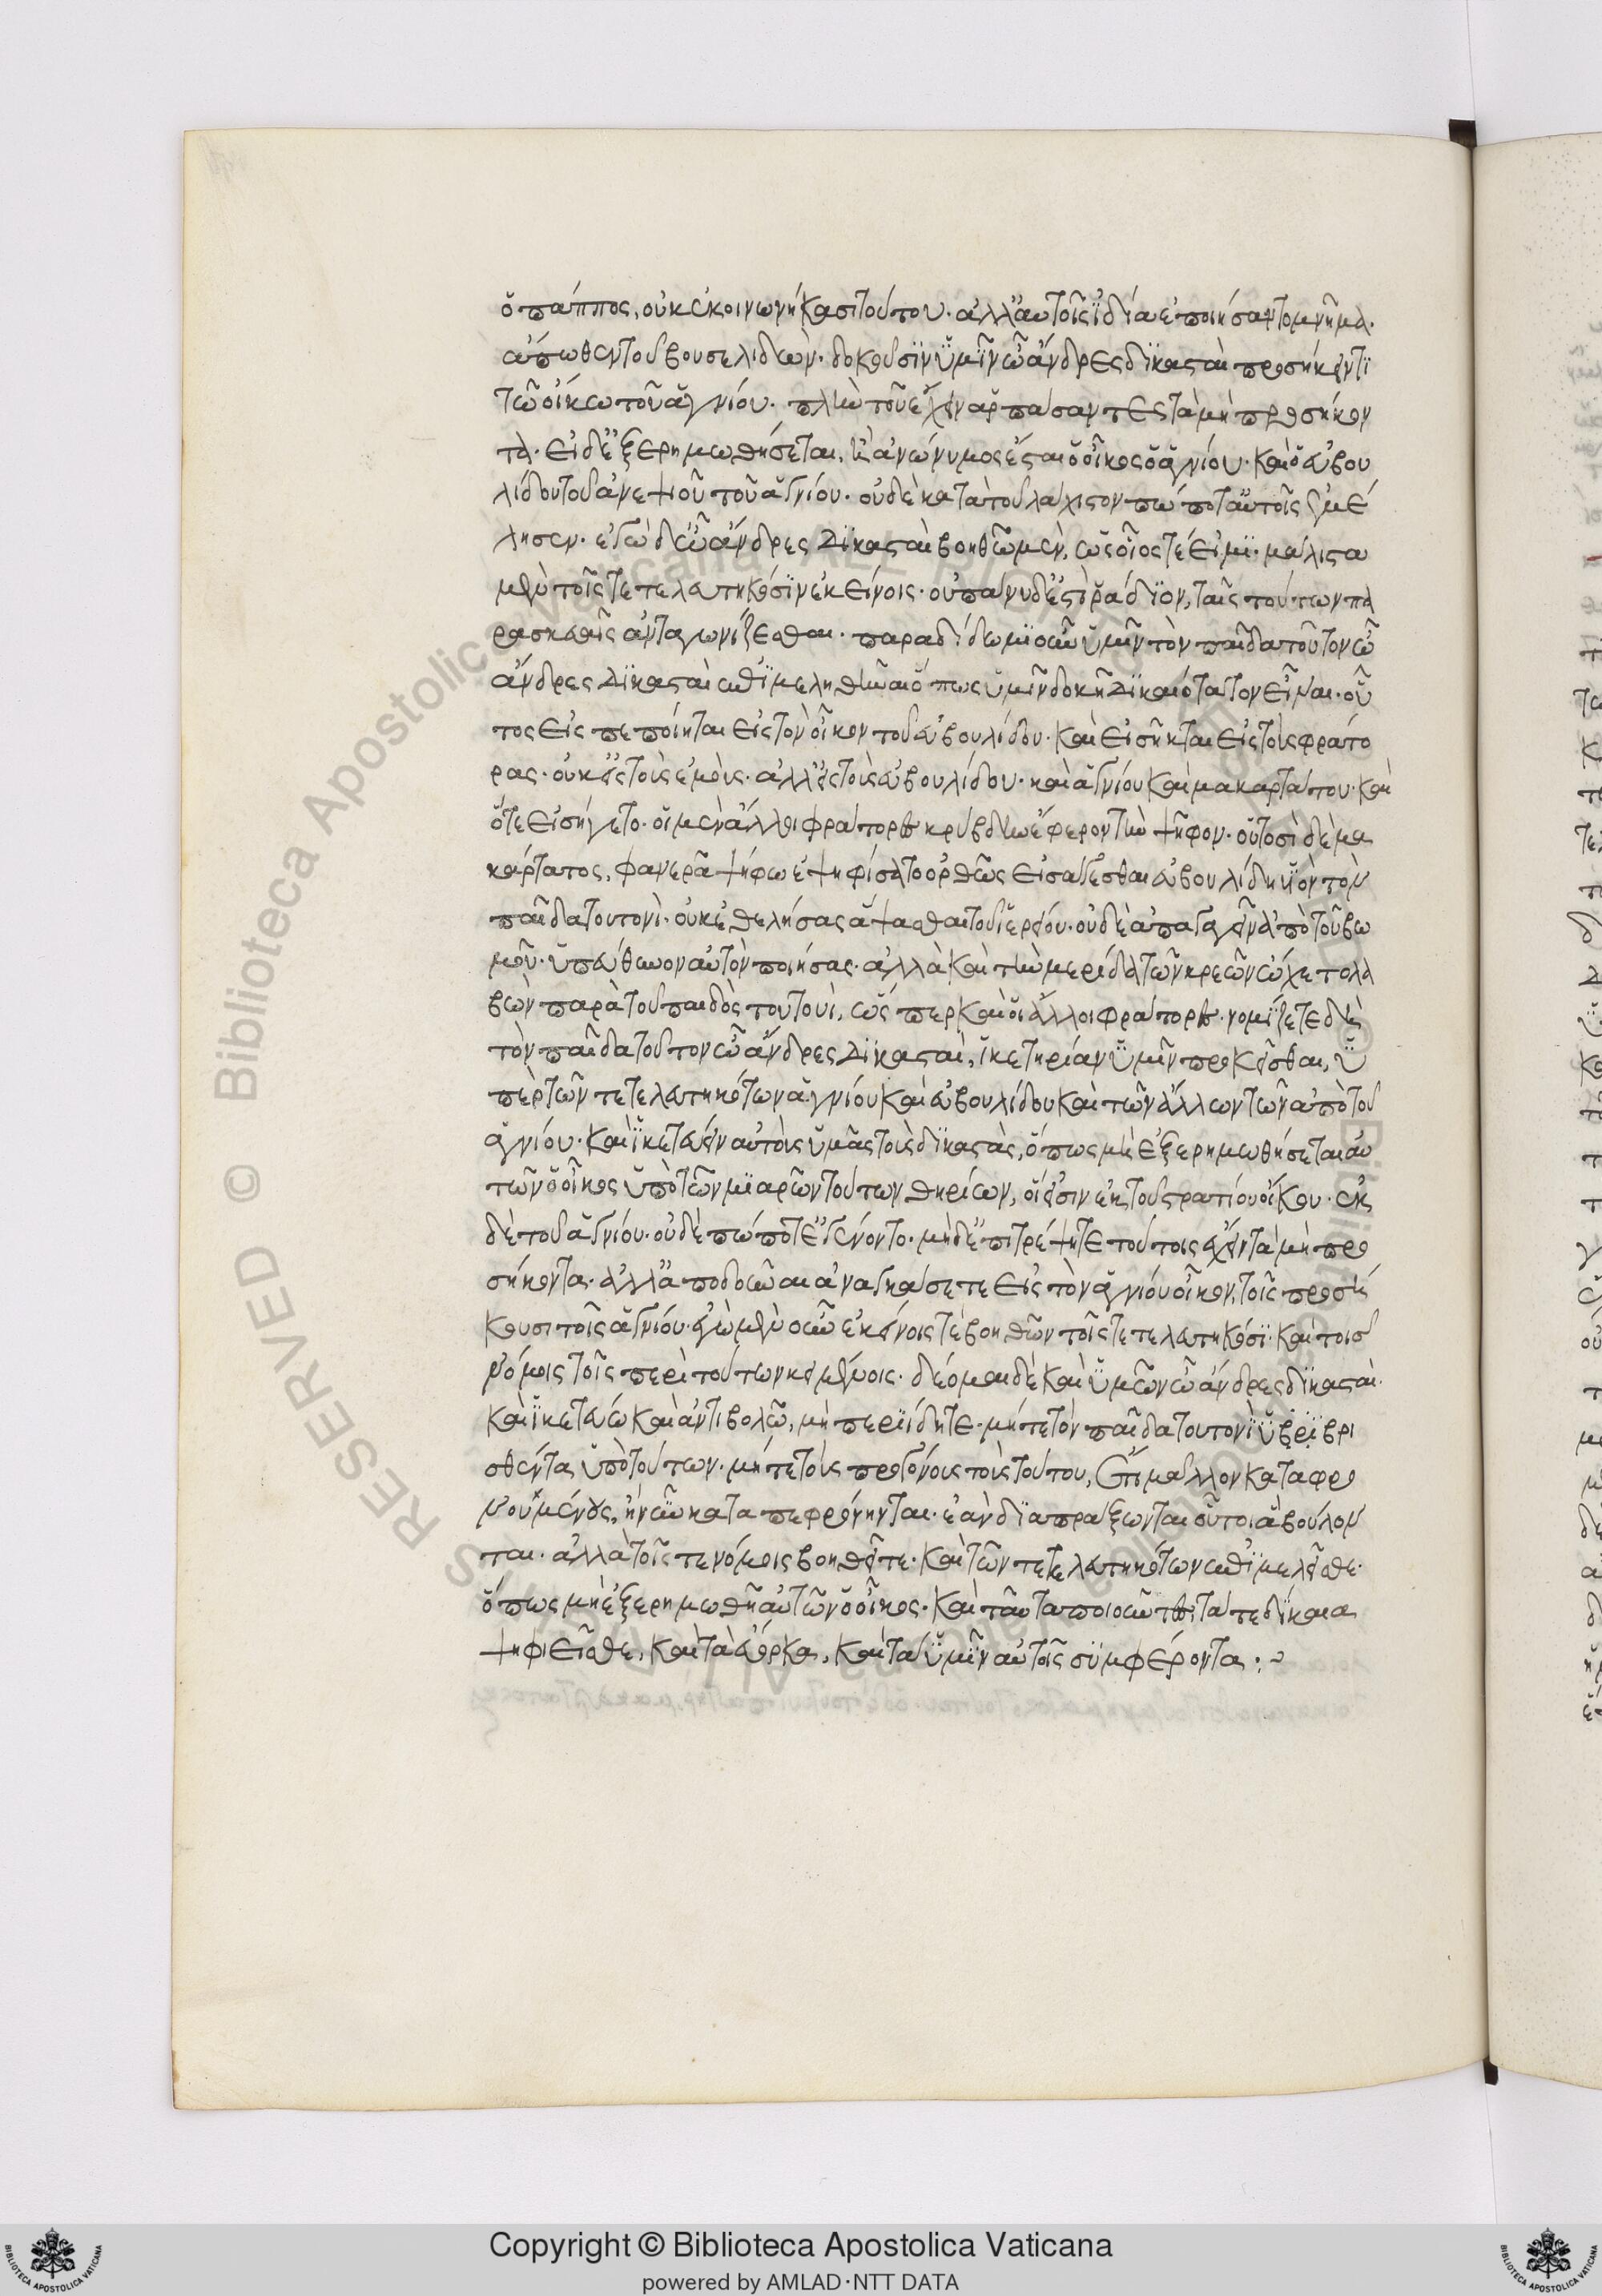 ὁ πάππος, οὐ κεκοινωνήκασι τούτου· ἀλλ' αὐτοῖς ἰδία ἐποιήσαντο μνῆμα·
ἄπωθεν τοῦ βουσελιδῶν· δοκοῦσιν ὑμῖν ὦ ἄνδρες δικασταὶ προσήκειν τι
τῶ οἴκω τοῦ ἁγνίου· πλὴν τοῦ ἔχειν ἁρπάσαντες τὰ μὴ προσήκον
τα· εἰ δ' ἐξερημωθήσεται, καὶ ἀνώνυμος ἔσται ὁ οἶκος ὁ ἁγνίου· καὶ ὁ εὐβου
λίδου τοῦ ἀνεψιοῦ τοῦ ἁγνίου· οὐδὲ κατὰ τουλάχιστον πώποτ' αὐτοῖς ἐμέ
λησεν· ἐγὼ δ' ὦ ἄνδρες δικασταὶ βοηθῶ μὲν, ὡς οἷός τέ εἰμι· μάλιστα
μὲν τοῖς τετελευτηκόσιν ἐκείνοις· οὐ πάνυ δ' ἐστὶ ῥάδιον, ταῖς τούτων πα
ρασκευαῖς ἀνταγωνίζεσθαι· παραδίδωμι οὖν ὑμῖν τὸν παῖδα τοῦτον ὦ
ἄνδρες δικασταὶ ἐπιμεληθῆναι ὅπως ὑμῖν δοκῆ δικαιότατον εἶναι· οὗ
τος εἰς πεποίηται εἰς τὸν οἶκον τοῦ εὐβουλίδου· καὶ εἰσῆκται εἰς τοὺς φράτο
ρας· οὐκ εἰς τοὺς ἐμοὺς· ἀλλ' εἰς τοὺς εὐβουλίδου· καὶ ἁγνίου καὶ μακαρτάτου· καὶ
ὅτε εἰσήγετο· οἱ μὲν ἄλλοι φράτορες κρύβδην ἔφερον τὴν ψῆφον· οὑτοσὶ δὲ μα
κάρτατος, φανερᾶ ψήφω ἐψηφίσατο ὀρθῶς εἰσάγεσθαι εὐβουλίδη υἱὸν τὸν
παῖδα τουτονὶ· οὐκ ἐθελήσας ἅψασθαι τοῦ ἱερείου· οὐδὲ ἀπαγαγεῖν ἀπὸ τοῦ βω
μοῦ· ὑπεύθυνον αὐτὸν ποιήσας· ἀλλὰ καὶ τὴν μερίδα τῶν κρεῶν ὤχετο λα
βὼν παρὰ τοῦ παιδὸς τουτουὶ, ὥσπερ καὶ οἱ ἄλλοι φράτορες· νομίζετε δὴ
τὸν παῖδα τοῦτον ὦ ἄνδρες δικασταὶ, ἱκετηρίαν ὑμῖν προκεῖσθαι, ὑ
πὲρ τῶν τετελευτηκότων ἁγνίου καὶ εὐβουλίδου καὶ τῶν ἄλλων τῶν ἀπὸ τοῦ
ἁγνίου· καὶ ἱκετεύειν αὐτοὺς ὑμᾶς τοὺς δικαστὰς, ὅπως μὴ ἐξερημωθήσεται αὐ
τῶν ὁ οἶκος ὑπὸ τῶν μιαρῶν τούτων θηρίων, οἵ εἰσιν ἐκ τοῦ στρατίου οἴκου· ἐκ
δὲ τοῦ ἁγνίου· οὐδὲ πώποτε ἐγένοντο· μὴ δ' ἐπιτρέψητε τούτοις ἔχειν τὰ μὴ προ
σήκοντα· ἀλλ' ἀποδοῦναι ἀναγκάσετε εἰς τὸν ἁγνίου οἶκον, τοῖς προσή
κουσι τοῖς ἁγνίου· ἐγὼ μὲν οὖν ἐκείνοις τε βοηθῶν τοῖς τετελευτηκόσι· καὶ τοῖς
νόμοις τοῖς περὶ τούτων κειμένοις· δέομαι δὲ καὶ ὑμῶν ὦ ἄνδρες δικασταὶ·
καὶ ἱκετεύω καὶ ἀντιβολῶ, μὴ περιίδητε· μήτε τὸν παῖδα τουτονὶ ὑβριβρι
σθέντα ὑπὸ τούτων· μήτε τοὺς προγόνους τοὺς τούτου, ἔτι μᾶλλον καταφρο
νουμένους, ἢ νῦν καταπεφρόνηνται· ἐὰν διαπράξωνται οὗτοι ἃ βούλον
ται· ἀλλὰ τοῖς τε νόμοις βοηθεῖτε· καὶ τῶν τετελευτηκότων ἐπιμελεῖσθε·
ὅπως μὴ ἐξερημωθῆ αὐτῶν ὁ οἶκος· καὶ ταῦτα ποιοῦντες, τά τε δίκαια
ψηφιεῖσθε, καὶ τὰ εὔορκα, καὶ τὰ ὑμῖν αὐτοῖς συμφέροντα :~
RESERVED © Biblioteca Apostolica Vaticana ALL RIGHTS
Copyright © Biblioteca Apostolica Vaticana
powered by AMLAD·NTT DATA